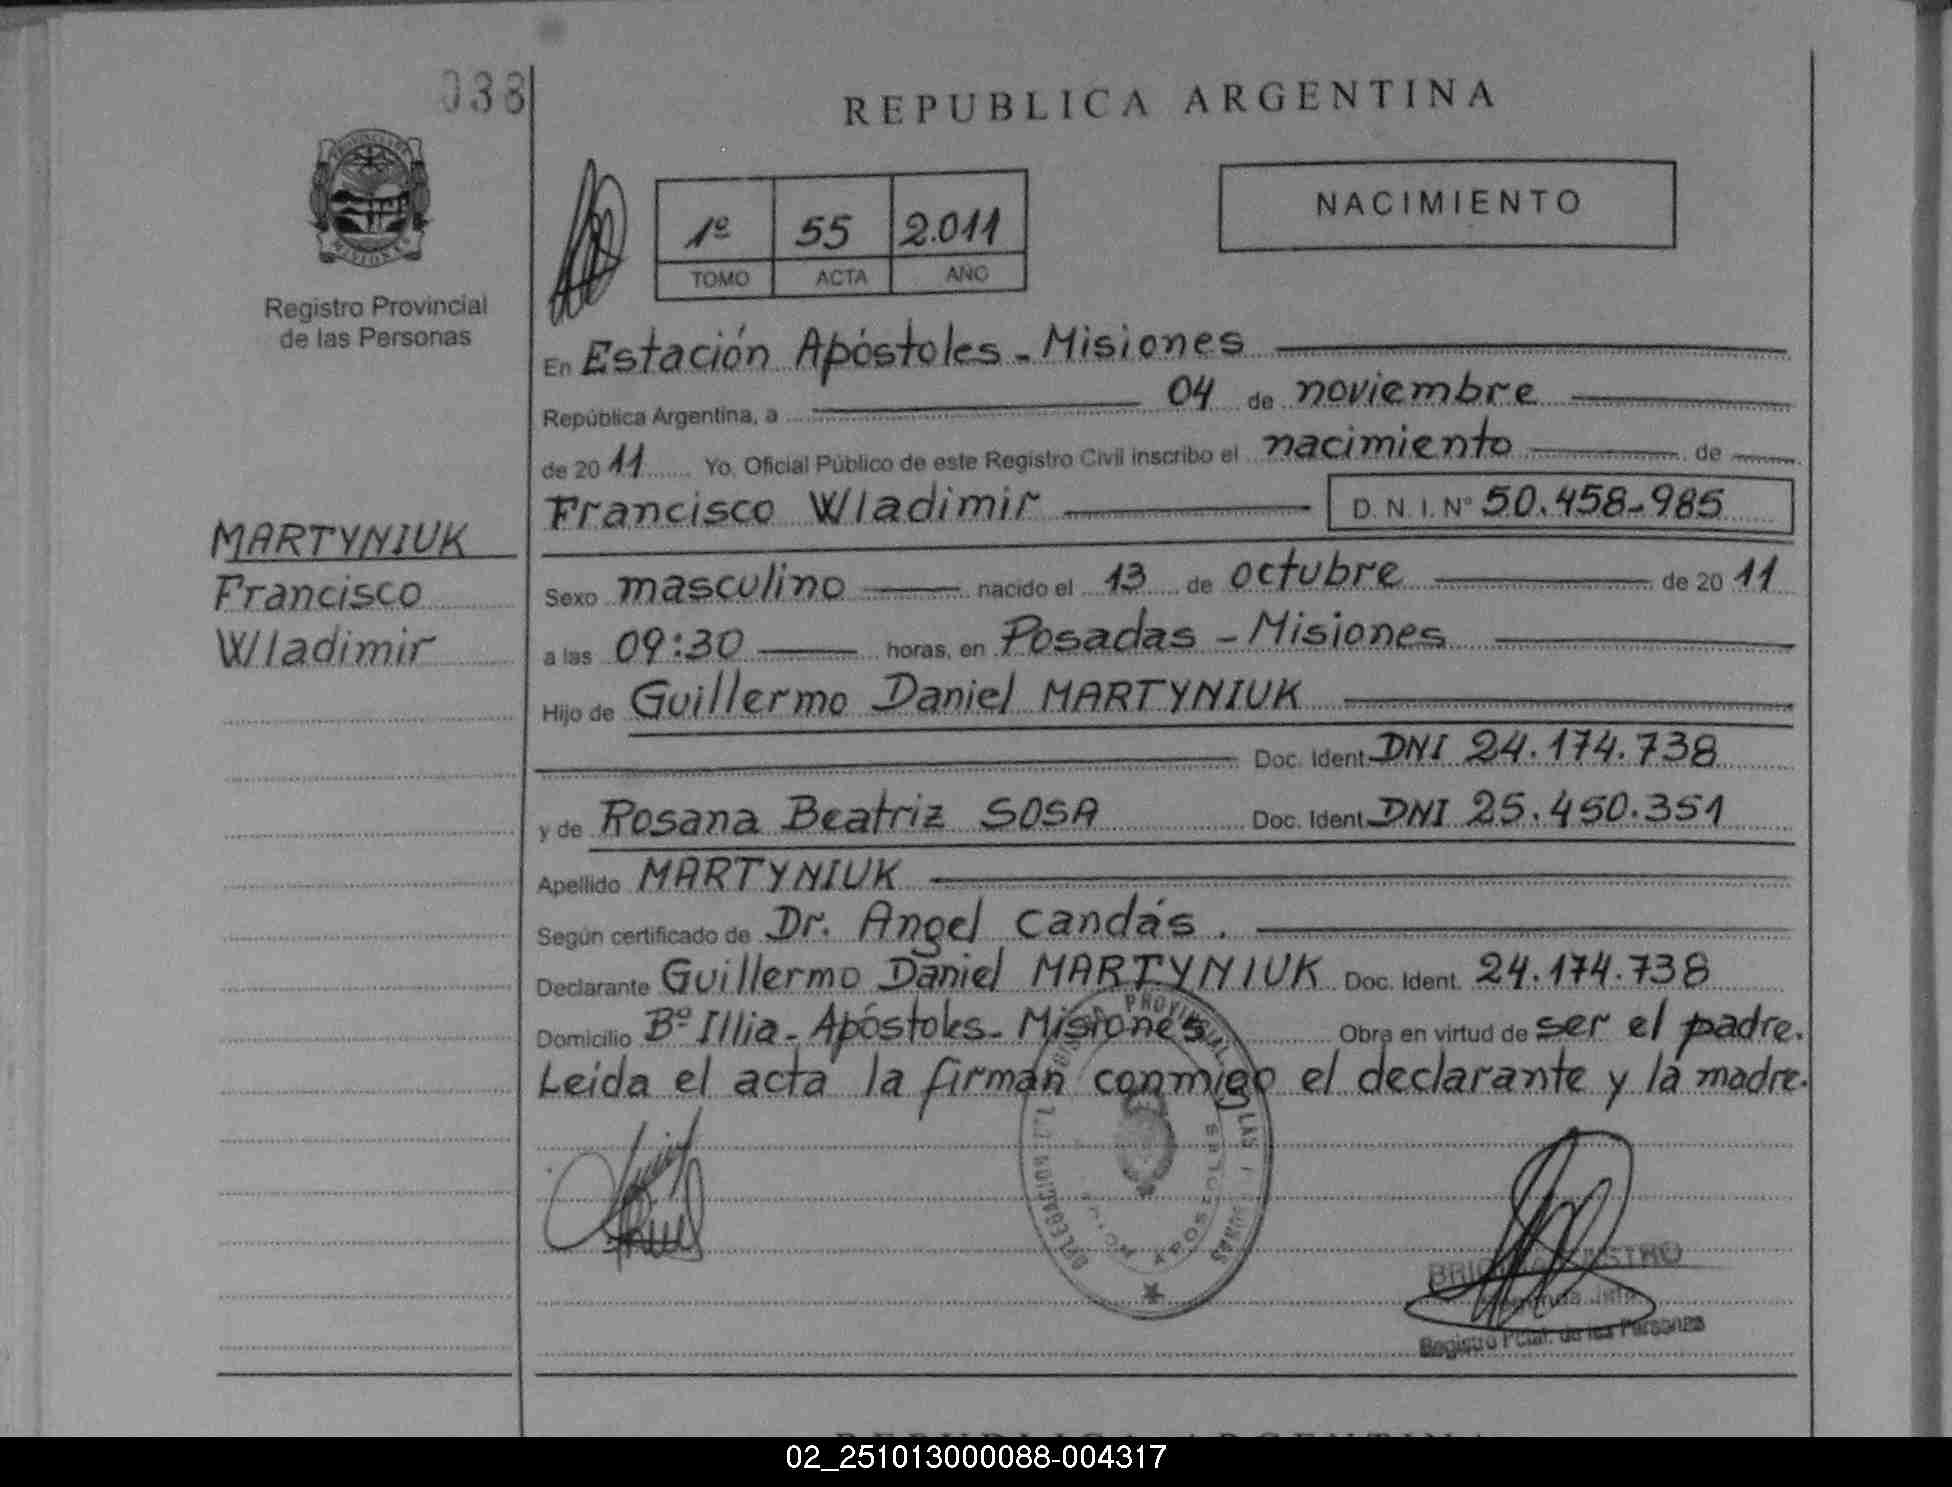 038
REPUBLICA ARGENTINA
PROVINCIA DE
MISIONES
Registro Provincial
de las Personas
1º 55 2.011
TOMO ACTA AÑO
NACIMIENTO
En Estación Apóstoles - Misiones
República Argentina, a 04 de noviembre
de 2011 Yo, Oficial Público de este Registro Civil inscribo el nacimiento de
Francisco Wladimir D. N. I. Nº 50.458.985
MARTYNIUK
Francisco
Wladimir
Sexo masculino nacido el 13 de octubre de 2011
a las 09:30 horas, en Posadas - Misiones
Hijo de Guillermo Daniel MARTYNIUK
Doc. Ident. DNI 24.174.738
y de Rosana Beatriz SOSA Doc. Ident. DNI 25.450.351
Apellido MARTYNIUK
Según certificado de Dr. Angel Candás.
Declarante Guillermo Daniel MARTYNIUK Doc. Ident. 24.174.738
Domicilio Bº Illia - Apóstoles - Misiones Obra en virtud de ser el padre.
Leida el acta la firman conmigo el declarante y la madre.
PROVINCIAL LAS
DELEGACION
APOSTOLES
Registro Pcial. de las Personas
REPUBLICA ARGENTINA
02_251013000088-004317